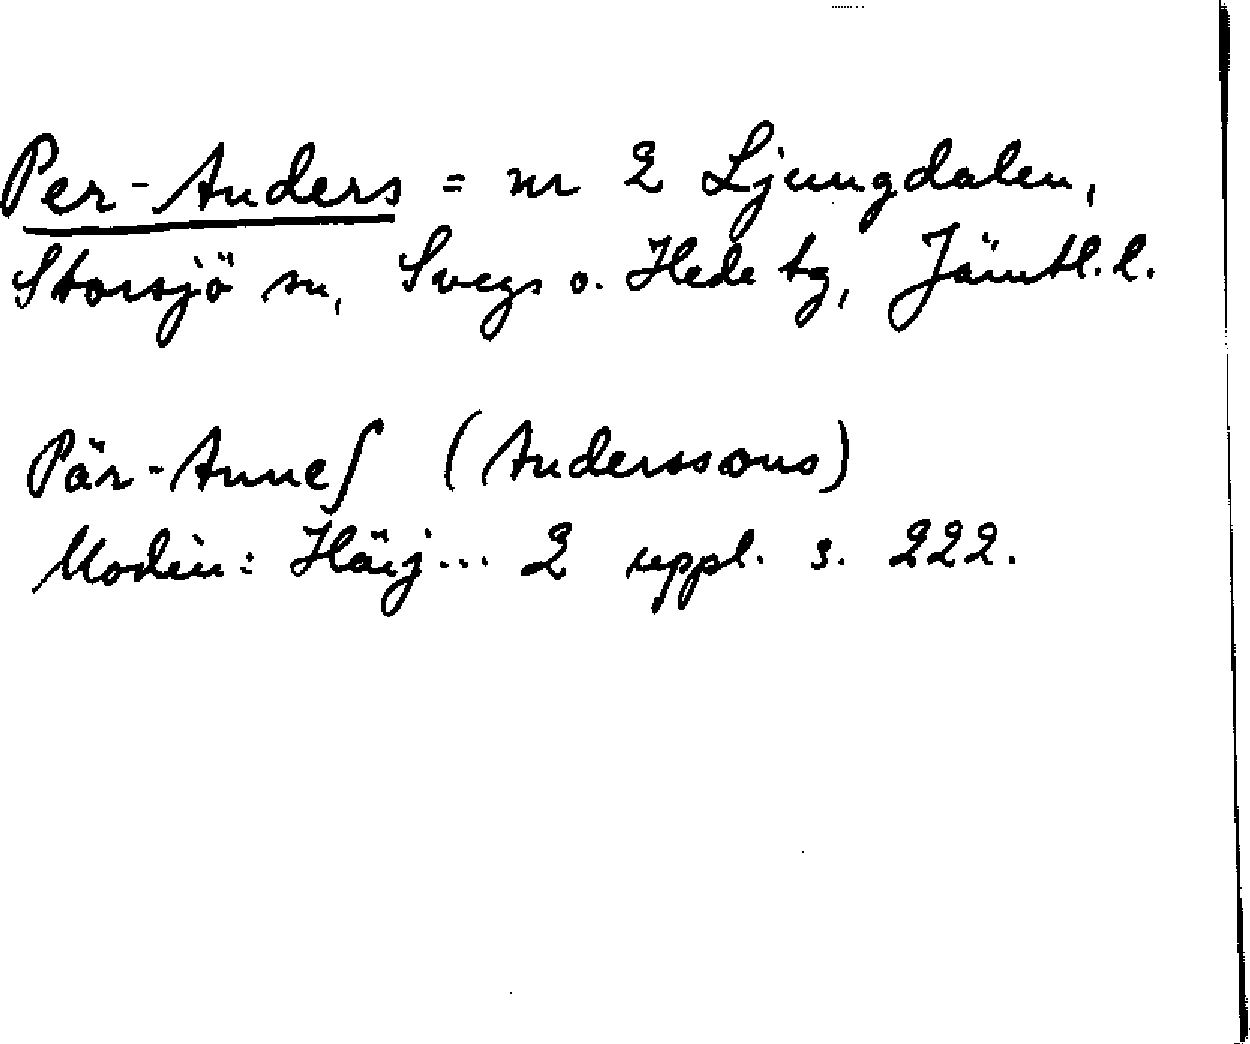 Per-Anders = nr 2 Ljungdalen,
Storsjö sn, Svegs o. Hede tg, Jämtl. l.
Pär-Anneʃ (Anderssons)
Modin: Härj... 2 uppl. s. 222.